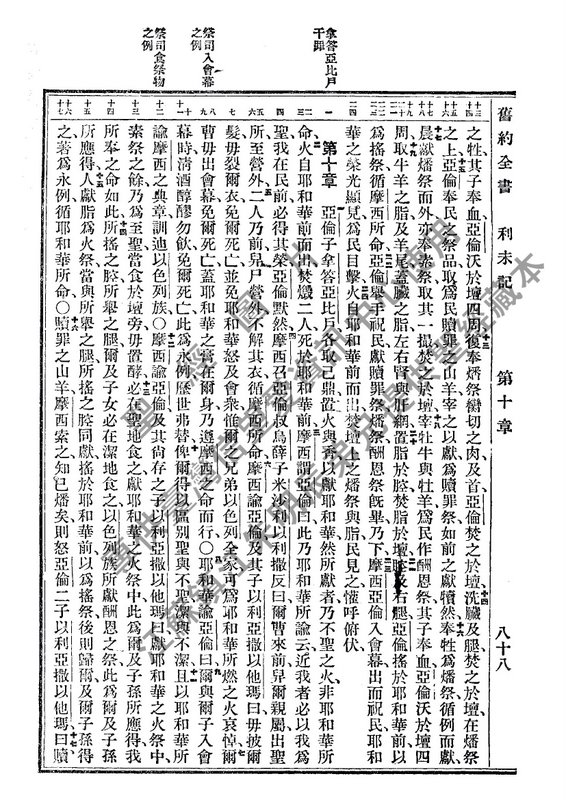 舊約全書 利未記 第十章 八十八
之牲其子奉血亞倫沃於壇四周復奉燔祭臠切之肉及首亞倫焚之於壇洗臟及腿焚之於壇在燔祭
之上亞倫奉民之祭品取爲民贖罪之山羊宰之以獻爲贖罪祭如前之獻犢然奉牲爲燔祭循例而獻
晨獻燔祭而外亦奉素祭取其一撮焚之於壇宰牡牛與牡羊爲民作酬恩祭其子奉血亞倫沃於壇四
周取牛羊之脂及羊尾蓋臟之脂左右腎與肝網置脂於腔焚脂於壇腔及右腿亞倫搖於耶和華前以
爲搖祭循摩西所命亞倫舉手祝民獻贖罪祭燔祭酬恩祭旣畢乃下摩西亞倫入會幕出而祝民耶和
華之榮光顯見爲民目擊火自耶和華前而出焚壇上之燔祭與脂民見之懽呼俯伏
第十章 亞倫子拿答亞比戶各取己鼎置火與香以獻耶和華然所獻者乃不聖之火非耶和華所
命火自耶和華前而出焚燬二人死於耶和華前摩西謂亞倫曰此乃耶和華所諭云近我者必以我爲
聖我在民前必得其榮亞倫默然摩西召亞倫叔烏薛子米沙利以利撒反曰爾曹來前舁爾親屬出聖
所至營外二人乃前舁尸營外不解其衣循摩西所命摩西諭亞倫及其子以利亞撒以他瑪曰毋披爾
髮毋裂爾衣免爾死亡並免耶和華怒及會衆惟爾之兄弟以色列全家可爲耶和華所燃之火哀悼爾
曹毋出會幕免爾死亡蓋耶和華之膏在爾身乃遵摩西之命而行○耶和華諭亞倫曰爾與爾子入會
幕時淸酒醇醪勿飲免爾死亡此爲永例歷世弗替俾爾得以區別聖與不聖潔與不潔且以耶和華所
諭摩西之典章訓迪以色列族○摩西諭亞倫及其尙存之子以利亞撒以他瑪曰獻耶和華之火祭中
素祭之餘乃爲至聖當食於壇旁毋置酵必在聖地食之獻耶和華之火祭中此爲爾及子孫所應得我
所奉之命如此所搖之腔所舉之腿爾及子女必在潔地食之以色列族所獻酬恩之祭此爲爾及子孫
所應得人獻脂爲火祭當與所舉之腿所搖之腔同獻搖於耶和華前以爲搖祭後則歸爾及爾子孫得
之著爲永例循耶和華所命○贖罪之山羊摩西索之知已燔矣則怒亞倫二子以利亞撒以他瑪曰贖
拿答亞比戶
干罪
祭司入會幕
之例
祭司食祭物
之例